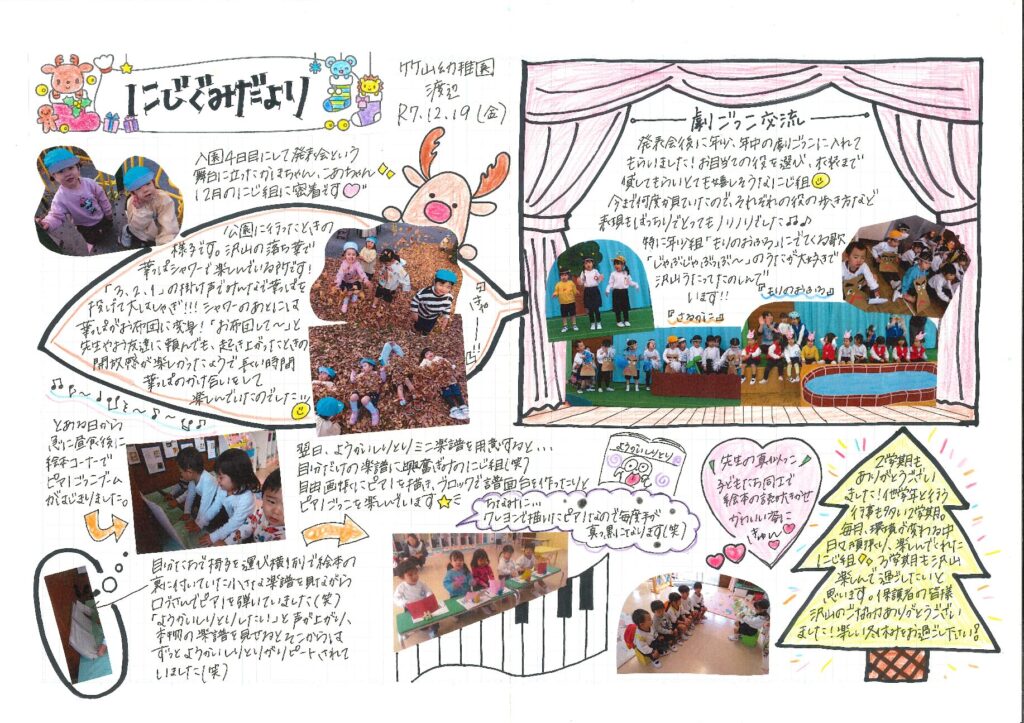 にじぐみだより
竹山幼稚園
渡辺
R7.12.19(金)
入園4日目にして発表会という
舞台に立った
12月のにじ組に密着です♡
公園に行ったときの
様子です。沢山の落ち葉で
葉っぱシャワーで楽しんでいる所です!
「3、2、1」の掛け声でみんなで葉っぱを
投げて大はしゃぎ!!! シャワーのあとには
葉っぱがお布団に変身!「お布団して〜」と
先生やお友達に頼んでも、起き上がったときの
開放感が楽しかったようで長い時間
葉っぱのかけ合いをして
楽しんでいたのでした…
とある日から
急に昼食後に
絵本コーナーで
ピアノごっこブーム
がはじまりました。
自分たちで椅子を運び横並びで絵本の
裏に付いていた小さな楽譜を見ながら
口ずさんでピアノを弾いていました(笑)
「ようかいしりとりしたい!」と声が上がり、
本物の楽譜を見せるとそこからは
ずっとようかいしりとりがリピートされて
いました(笑)
翌日、ようかいしりとりミニ楽譜を用意すると…
自分だけの楽譜に興奮ぎみのにじ組(笑)
自由画帳にピアノを描き、ブロックで譜面台を作ったりと
ピアノごっこを楽しんでいます☆
ようかいしりとり
ちなみに…
クレヨンで描いたピアノなので毎度手が
真っ黒になります(笑)
劇ごっこ交流
発表会後に年少、年中の劇ごっこに入れて
もらいました!お目当ての役を選び、お衣装まで
貸してもらいとても嬉しそうなにじ組
今まで何度か見ていたので、それぞれの役の歩き方など
表現もばっちりでとってもノリノリでした♪♪
特に年少組「もりのおふろ」にでてくる歌
「じゃぶじゃぶじゃぶ〜」のうたが大好きで
沢山うたってたのしんで
います!!
『もりのおふろ』
先生の真似っこ
子どもたち同士で
絵本の読みきかせ
かわいい姿に
きゅん♡
2学期も
ありがとうござい
ました!他学年と行う
行事も多い2学期。
毎日、環境が変わる中
日々頑張り、楽しんでくれた
にじ組♡。3学期も沢山
楽しんで過ごしたいと
思います。保護者の皆様
沢山のご協力ありがとうござい
ました!楽しい冬休みをお過ごし下さい。